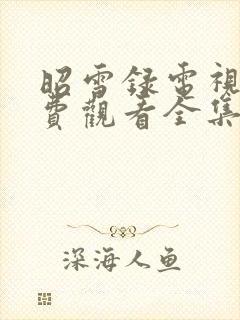 昭雪録電視
費觀看全集
深海人鱼